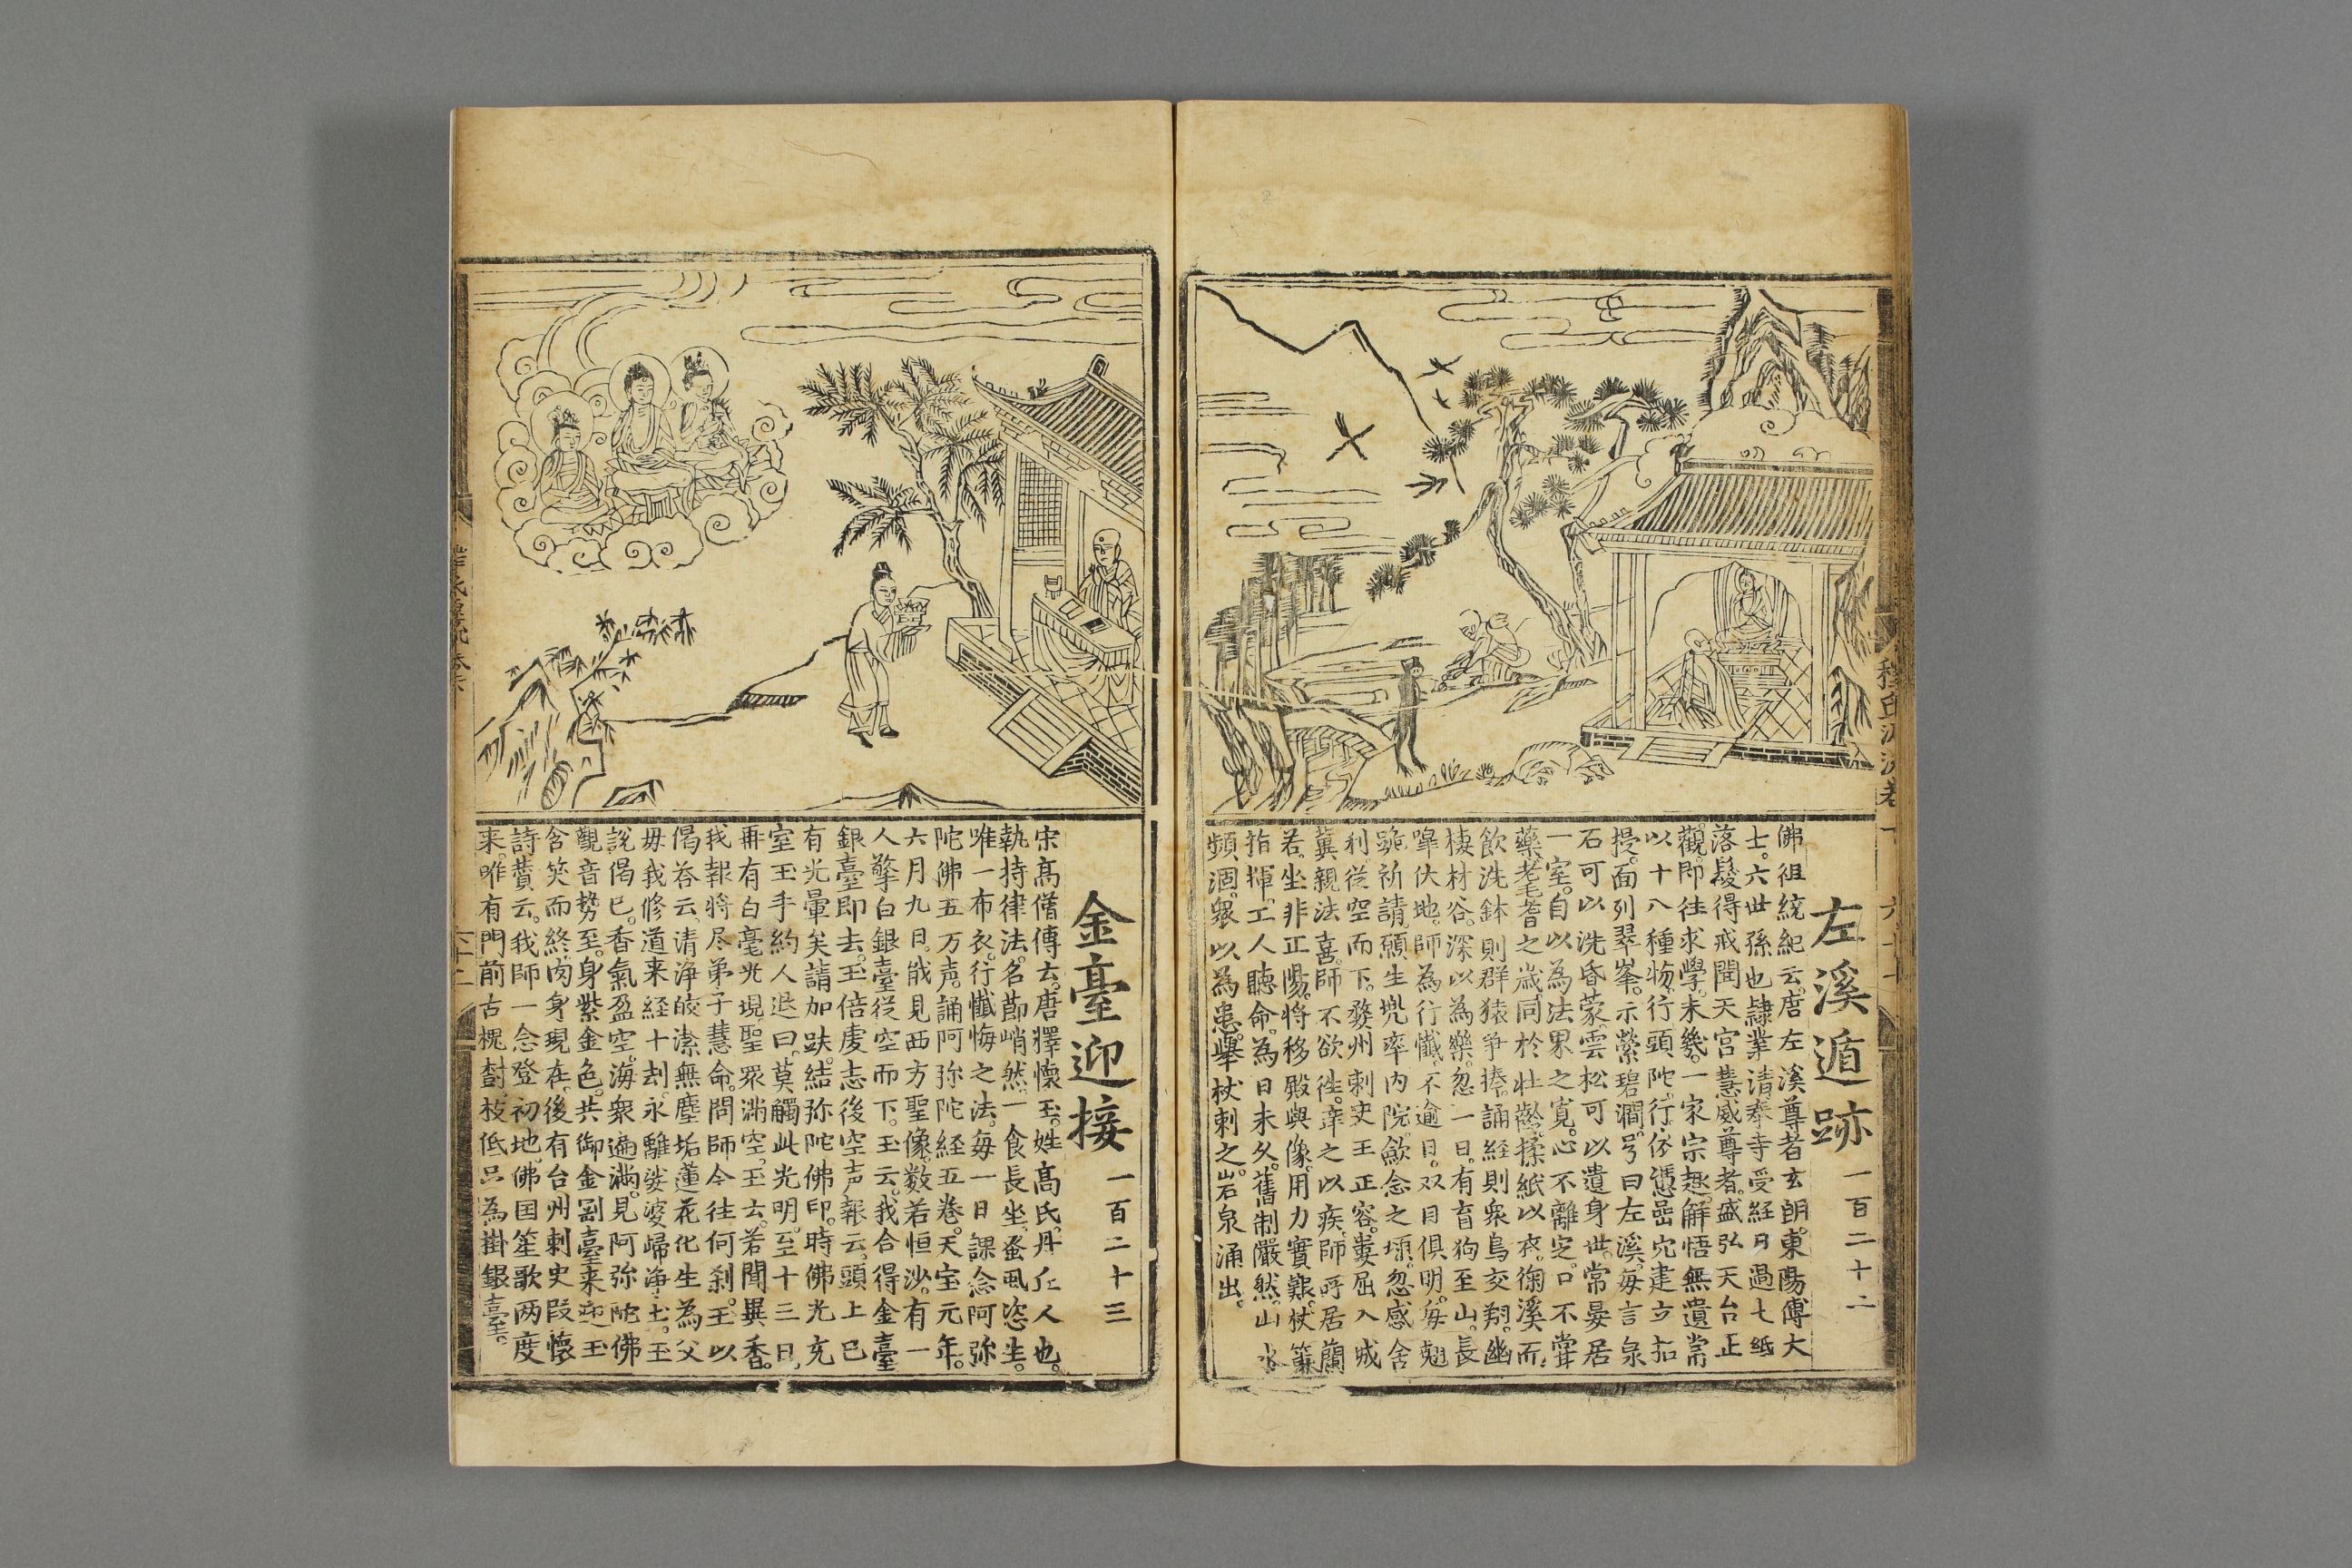 左溪遁跡 一百二十二
佛祖統紀云。唐左溪尊者玄朗。東陽傅大
士。六世孫也。隷業清泰寺受経日過七紙
落髮得戒聞天宮慧威尊者。盛弘天台正
觀。即往求學。未幾。一家宗趣。解悟無遺常
以十八種物。行頭陀行。依憑嵓穴建立招
提。面列翠峯。示縈碧澗。号曰左溪。每言泉
石可以洗昏蒙。雲松可以遺身世。常晏居
一室。自以為法界之寛。心不離定。口不甞
藥。老耄耆之歳。同於壯齡。揉紙以衣。掬溪而
飲洗鉢則群猿爭捧。誦経則衆鳥交翔。幽
棲林谷。深以為樂。忽一日。有盲狗至山。長
嘷伏地。師為行懺。不逾日。双目俱明。每翹
跪祈請。願生兜率内院。歛念之頃。忽感舍
利從空而下。婺州刺史王正容。婁屈入城
冀親法喜。師不欲徃。辝之以疾。師所居蘭
若。坐非正陽。將移殿與像。用力實艱。杖䇿
指揮。工人聽命。為日未久。舊制嚴然。山水
頻涸。衆以為患。舉杖刺之。岩泉涌出。
金臺迎接 一百二十三
宋髙僧傳云。唐釋懷玉。姓髙氏。丹丘人也。
執持律法。名節峭然。一食長坐。蚤虱恣生。
唯一布衣。行懺悔之法。每一日課念阿弥
陀佛五万声。誦阿弥陀経五卷。天宝元年。
六月九日。俄見西方聖像。数若恒沙。有一
人擎白銀臺從空而下。玉云。我合得金臺
銀臺即去。玉倍虔志後空声報云。頭上已
有光暈矣請加趺。結弥陀佛印。時佛光充
室玉手約人退曰。莫觸此光明。至十三日。
再有白毫光現。聖衆滿空。玉云。若聞異香。
我報将尽。弟子慧命。問師今往何刹。玉以
偈荅云清浄皎潔無塵垢蓮花化生為父
母我修道来経十刧。永離娑婆歸浄土。玉
說偈已。香氣盈空。海衆遍滿。見阿弥陀佛
觀音勢至。身紫金色。共御金剛臺来迎玉
含笑而終。肉身現在。後有台州刺史段懷
詩賛云。我師一念登初地。佛国笙歌两度
来。唯有門前古槐樹。枝低只為掛銀臺。